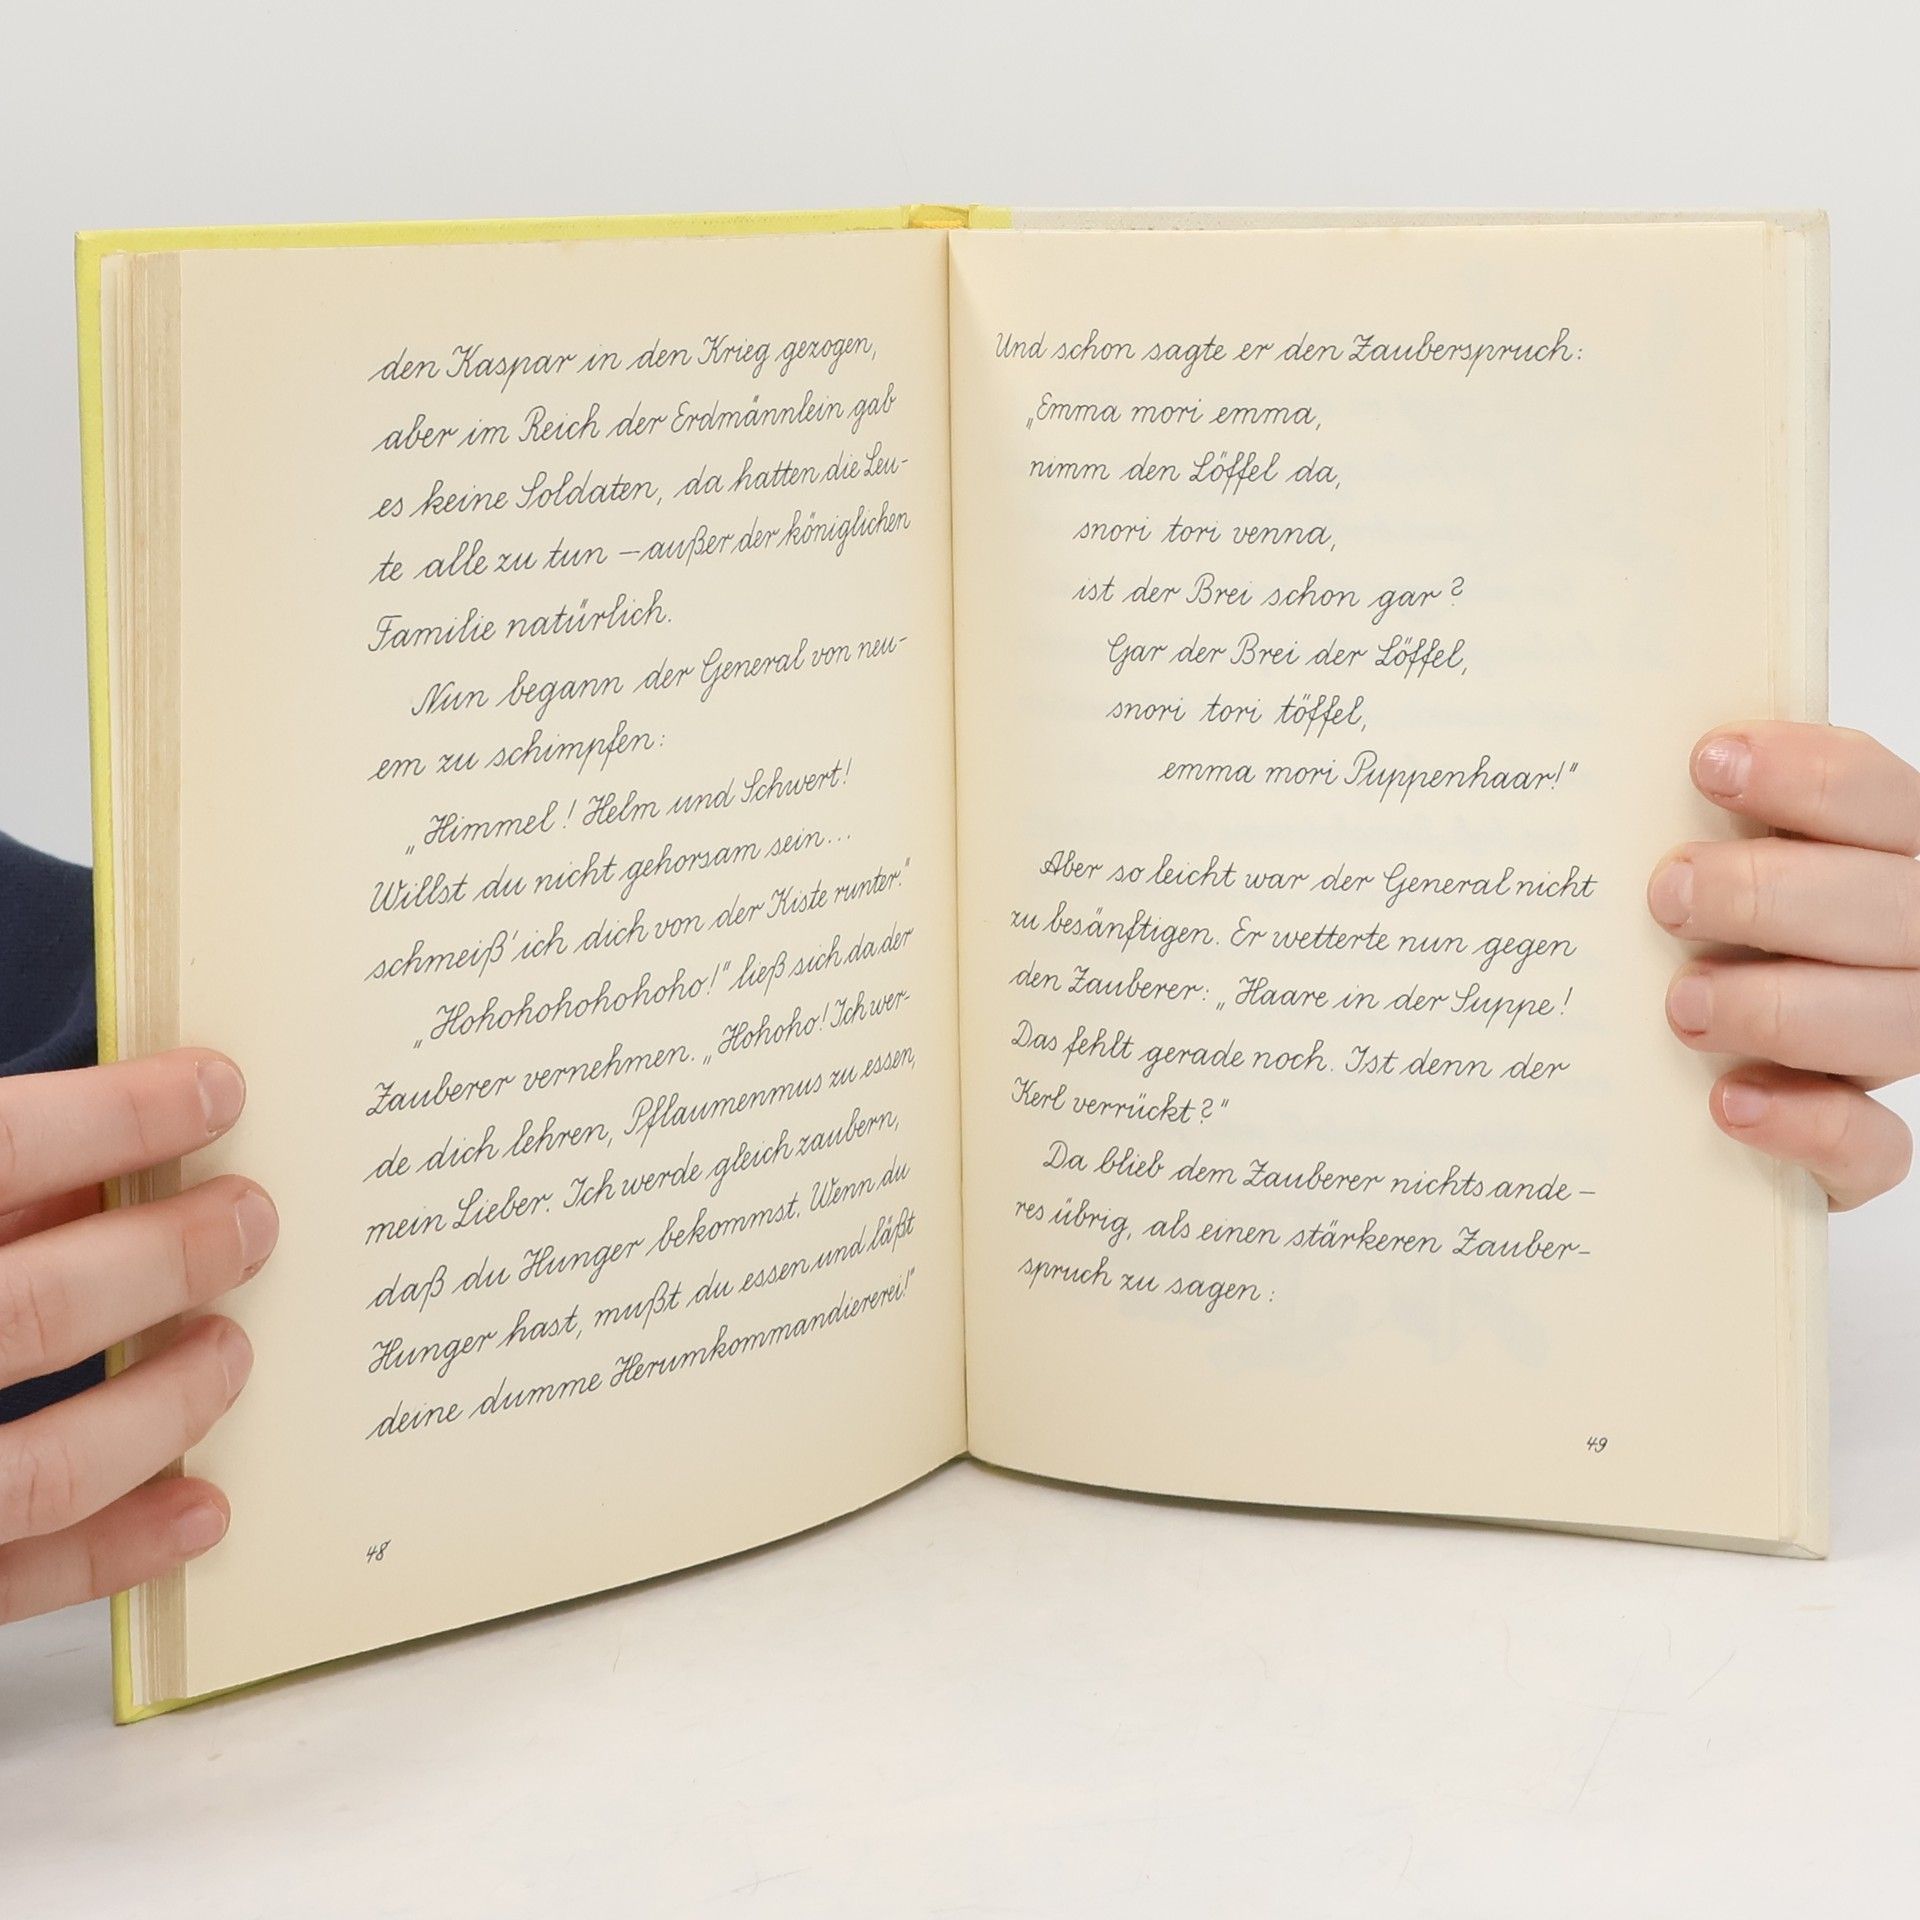 den Kaspar in den Krieg gezogen,
aber im Reich der Erdmännlein gab
es keine Soldaten, da hatten die Leu-
te alle zu tun – außer der königlichen
Familie natürlich.
Nun begann der General von neu-
em zu schimpfen:
„Himmel! Helm und Schwert!
Willst du nicht gehorsam sein...
schmeiß' ich dich von der Kiste runter."
„Hohohohohohoho!" ließ sich da der
Zauberer vernehmen. „Hohoho! Ich wer-
de dich lehren, Pflaumenmus zu essen,
mein Lieber. Ich werde gleich zaubern,
daß du Hunger bekommst. Wenn du
Hunger hast, mußt du essen und läßt
deine dumme Herumkommandiererei!"
48
Und schon sagte er den Zauberspruch:
„Emma mori emma,
nimm den Löffel da,
snori tori venna,
ist der Brei schon gar?
Gar der Brei der Löffel,
snori tori töffel,
emma mori Puppenhaar!"
Aber so leicht war der General nicht
zu besänftigen. Er wetterte nun gegen
den Zauberer: „Haare in der Suppe!
Das fehlt gerade noch. Ist denn der
Kerl verrückt?"
Da blieb dem Zauberer nichts ande-
res übrig, als einen stärkeren Zauber-
spruch zu sagen:
49